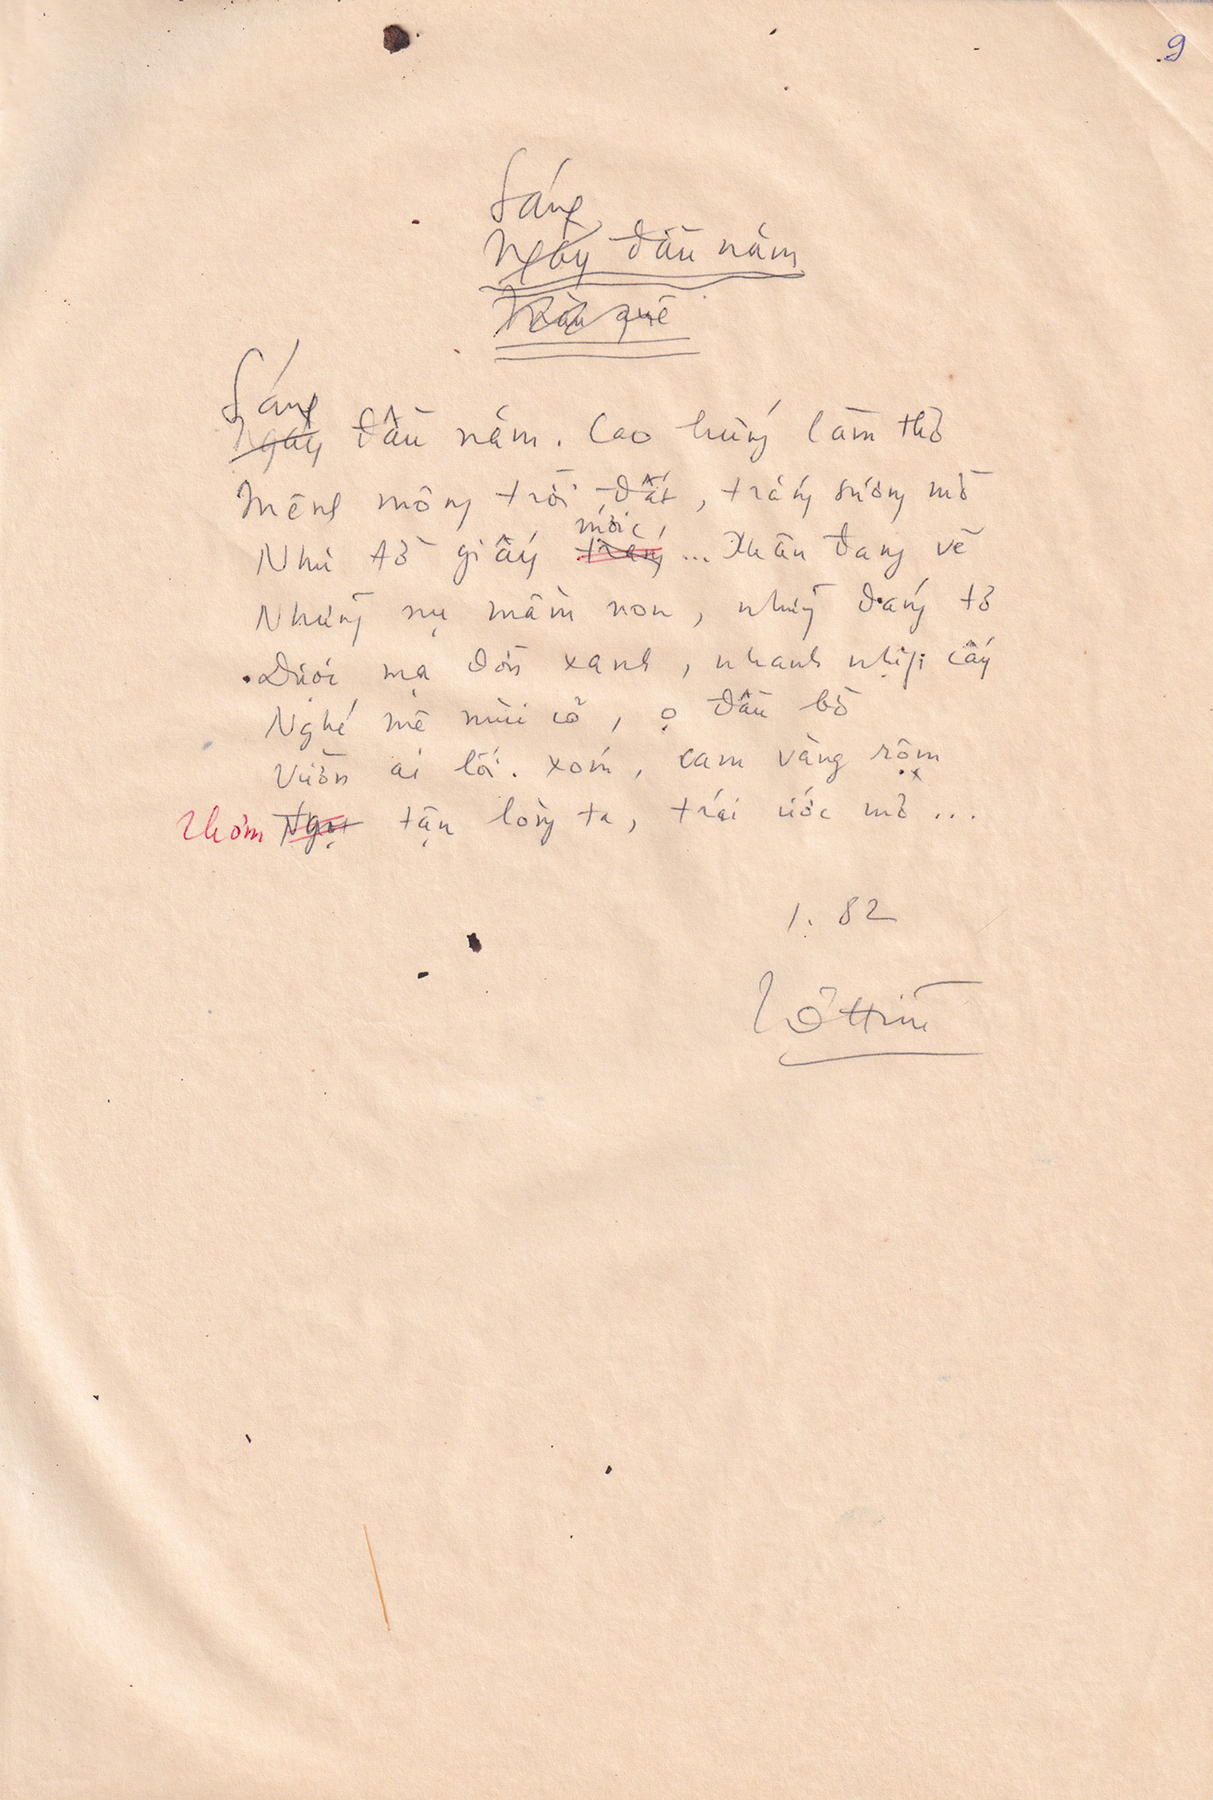 9
Sáng
Ngày đầu năm
quê
Sáng
Ngày đầu năm. Cao hứng làm thơ
Mênh mông trời đất, trắng sương mờ
mới
Như tờ giấy trắng... Xuân đang về
Những nụ mầm non, những dáng tơ
Dưới mạ đón xanh, nhanh nhịp cấy
Nghé mê mùi cỏ, ọ đầu bờ
Vườn ai lối xóm, cam vàng rộm
Thơm Ngọt tận lòng ta, trái ước mơ...
1. 82
Tố Hữu